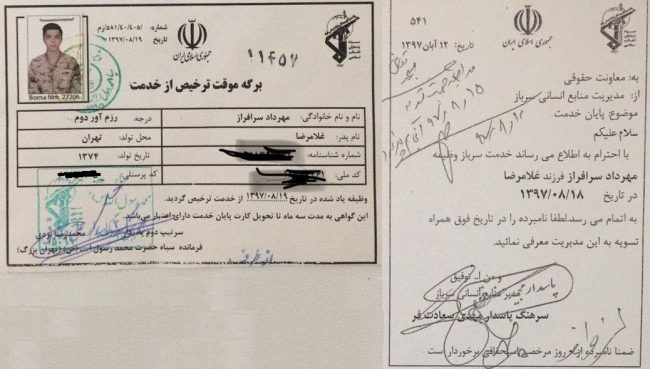 ۵۸۱/۴۰/۴۰۵/م ز
تاریخ ۱۳۹۷/۰۸/۱۹
جمهوری اسلامی ایران
Borna film, 27206
برگه موقت ترخیص از خدمت
نام و نام خانوادگی: مهرداد سرافراز درجه: رزم آور دوم
نام پدر: غلامرضا محل تولد: تهران
شماره شناسنامه: تاریخ تولد: ۱۳۷۴
کد ملی: کد پرسنلی:
وظیفه یاد شده در تاریخ ۱۳۹۷/۰۸/۱۹ از خدمت ترخیص گردید.
این گواهی به مدت سه ماه تا تحویل کارت پایان خدمت دارای اعتبار می‌باشد.
سرتیپ دوم پاسدار محمدرضا یزدی
فرمانده سپاه حضرت محمد رسول الله (ص) تهران بزرگ)
از طرف
۵۴۱
جمهوری اسلامی ایران
تاریخ: ۱۲ آبان ۱۳۹۷
به: معاونت حقوقی
از: مدیریت منابع انسانی سرباز
موضوع: پایان خدمت
سلام علیکم
با احترام به اطلاع می رساند خدمت سرباز وظیفه
مهرداد سرافراز فرزند غلامرضا
در تاریخ ۱۳۹۷/۰۸/۱۸
به اتمام می رسد.لطفا نامبرده را در تاریخ فوق همراه
تسویه به این مدیریت معرفی نمائید.
و من ا... توفیق
مدیر منابع انسانی سرباز
سرهنگ پاسدار مهدی سعادت فر
ضمنا نامبرده از روز مرخصی استحقاقی برخوردار است